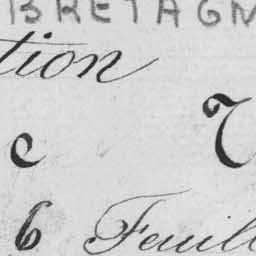 BRETAGN
tion
c V
6 Feuill